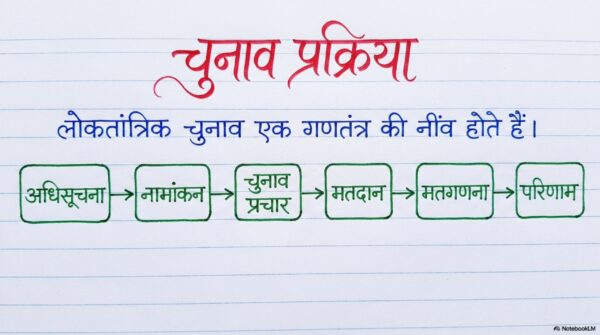 चुनाव प्रक्रिया
लोकतांत्रिक चुनाव एक गणतंत्र की नींव होते हैं।
अधिसूचना → नामांकन → चुनाव प्रचार → मतदान → मतगणना → परिणाम
NotebookLM